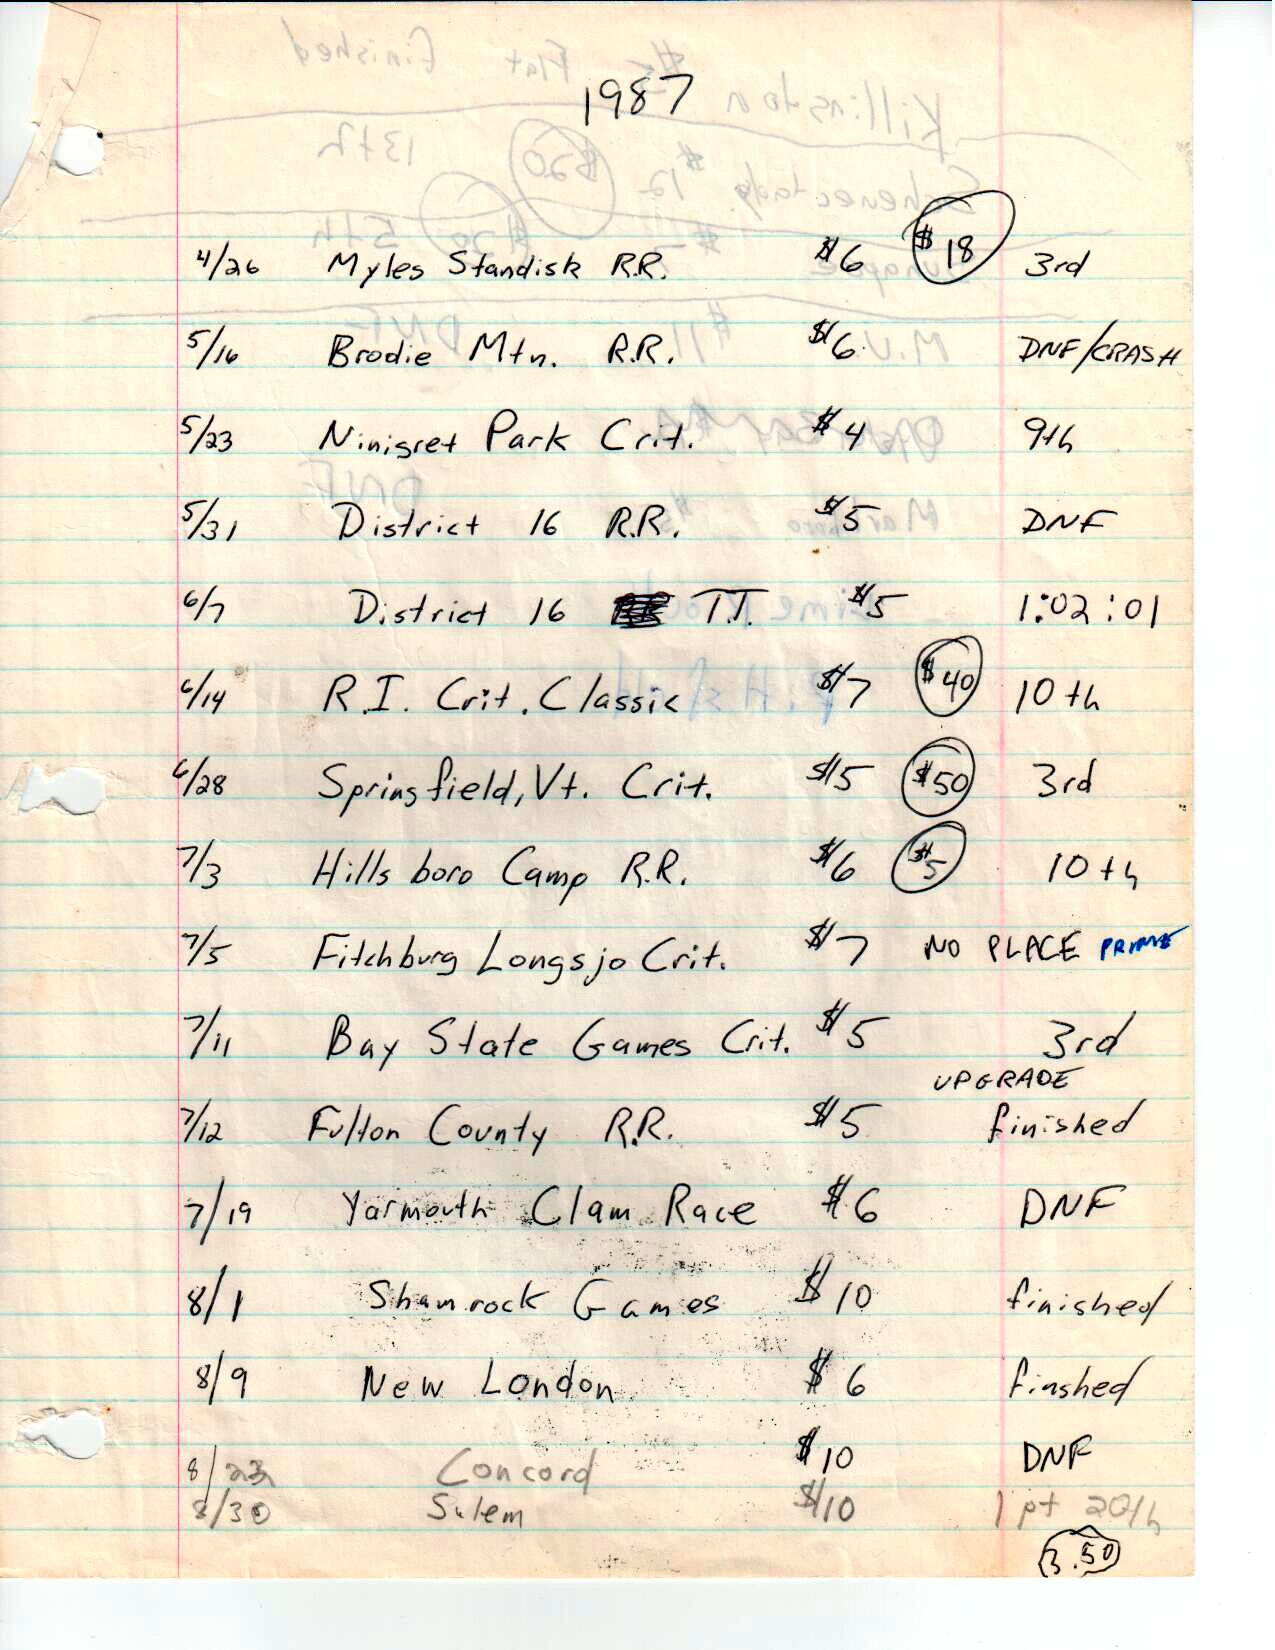 1987
4/26 Myles Standisk R.R. $6 $18 3rd
5/16 Brodie Mtn. R.R. $6 DNF/CRASH
5/23 Ninigret Park Crit. $4 9th
5/31 District 16 R.R. $5 DNF
6/7 District 16 T.T. $5 1:02:01
6/14 R.I. Crit. Classic $7 $40 10th
6/28 Springfield, Vt. Crit. $15 $50 3rd
7/3 Hillsboro Camp R.R. $6 $5 10th
7/5 Fitchburg Longsjo Crit. $7 NO PLACE PRIME
7/11 Bay State Games Crit. $5 3rd
UPGRADE
7/12 Fulton County R.R. $5 finished
7/19 Yarmouth Clam Race $6 DNF
8/1 Shamrock Games $10 finished
8/9 New London $6 finshed
8/23 Concord $10 DNF
8/30 Salem $10 1 pt 20th
3.50